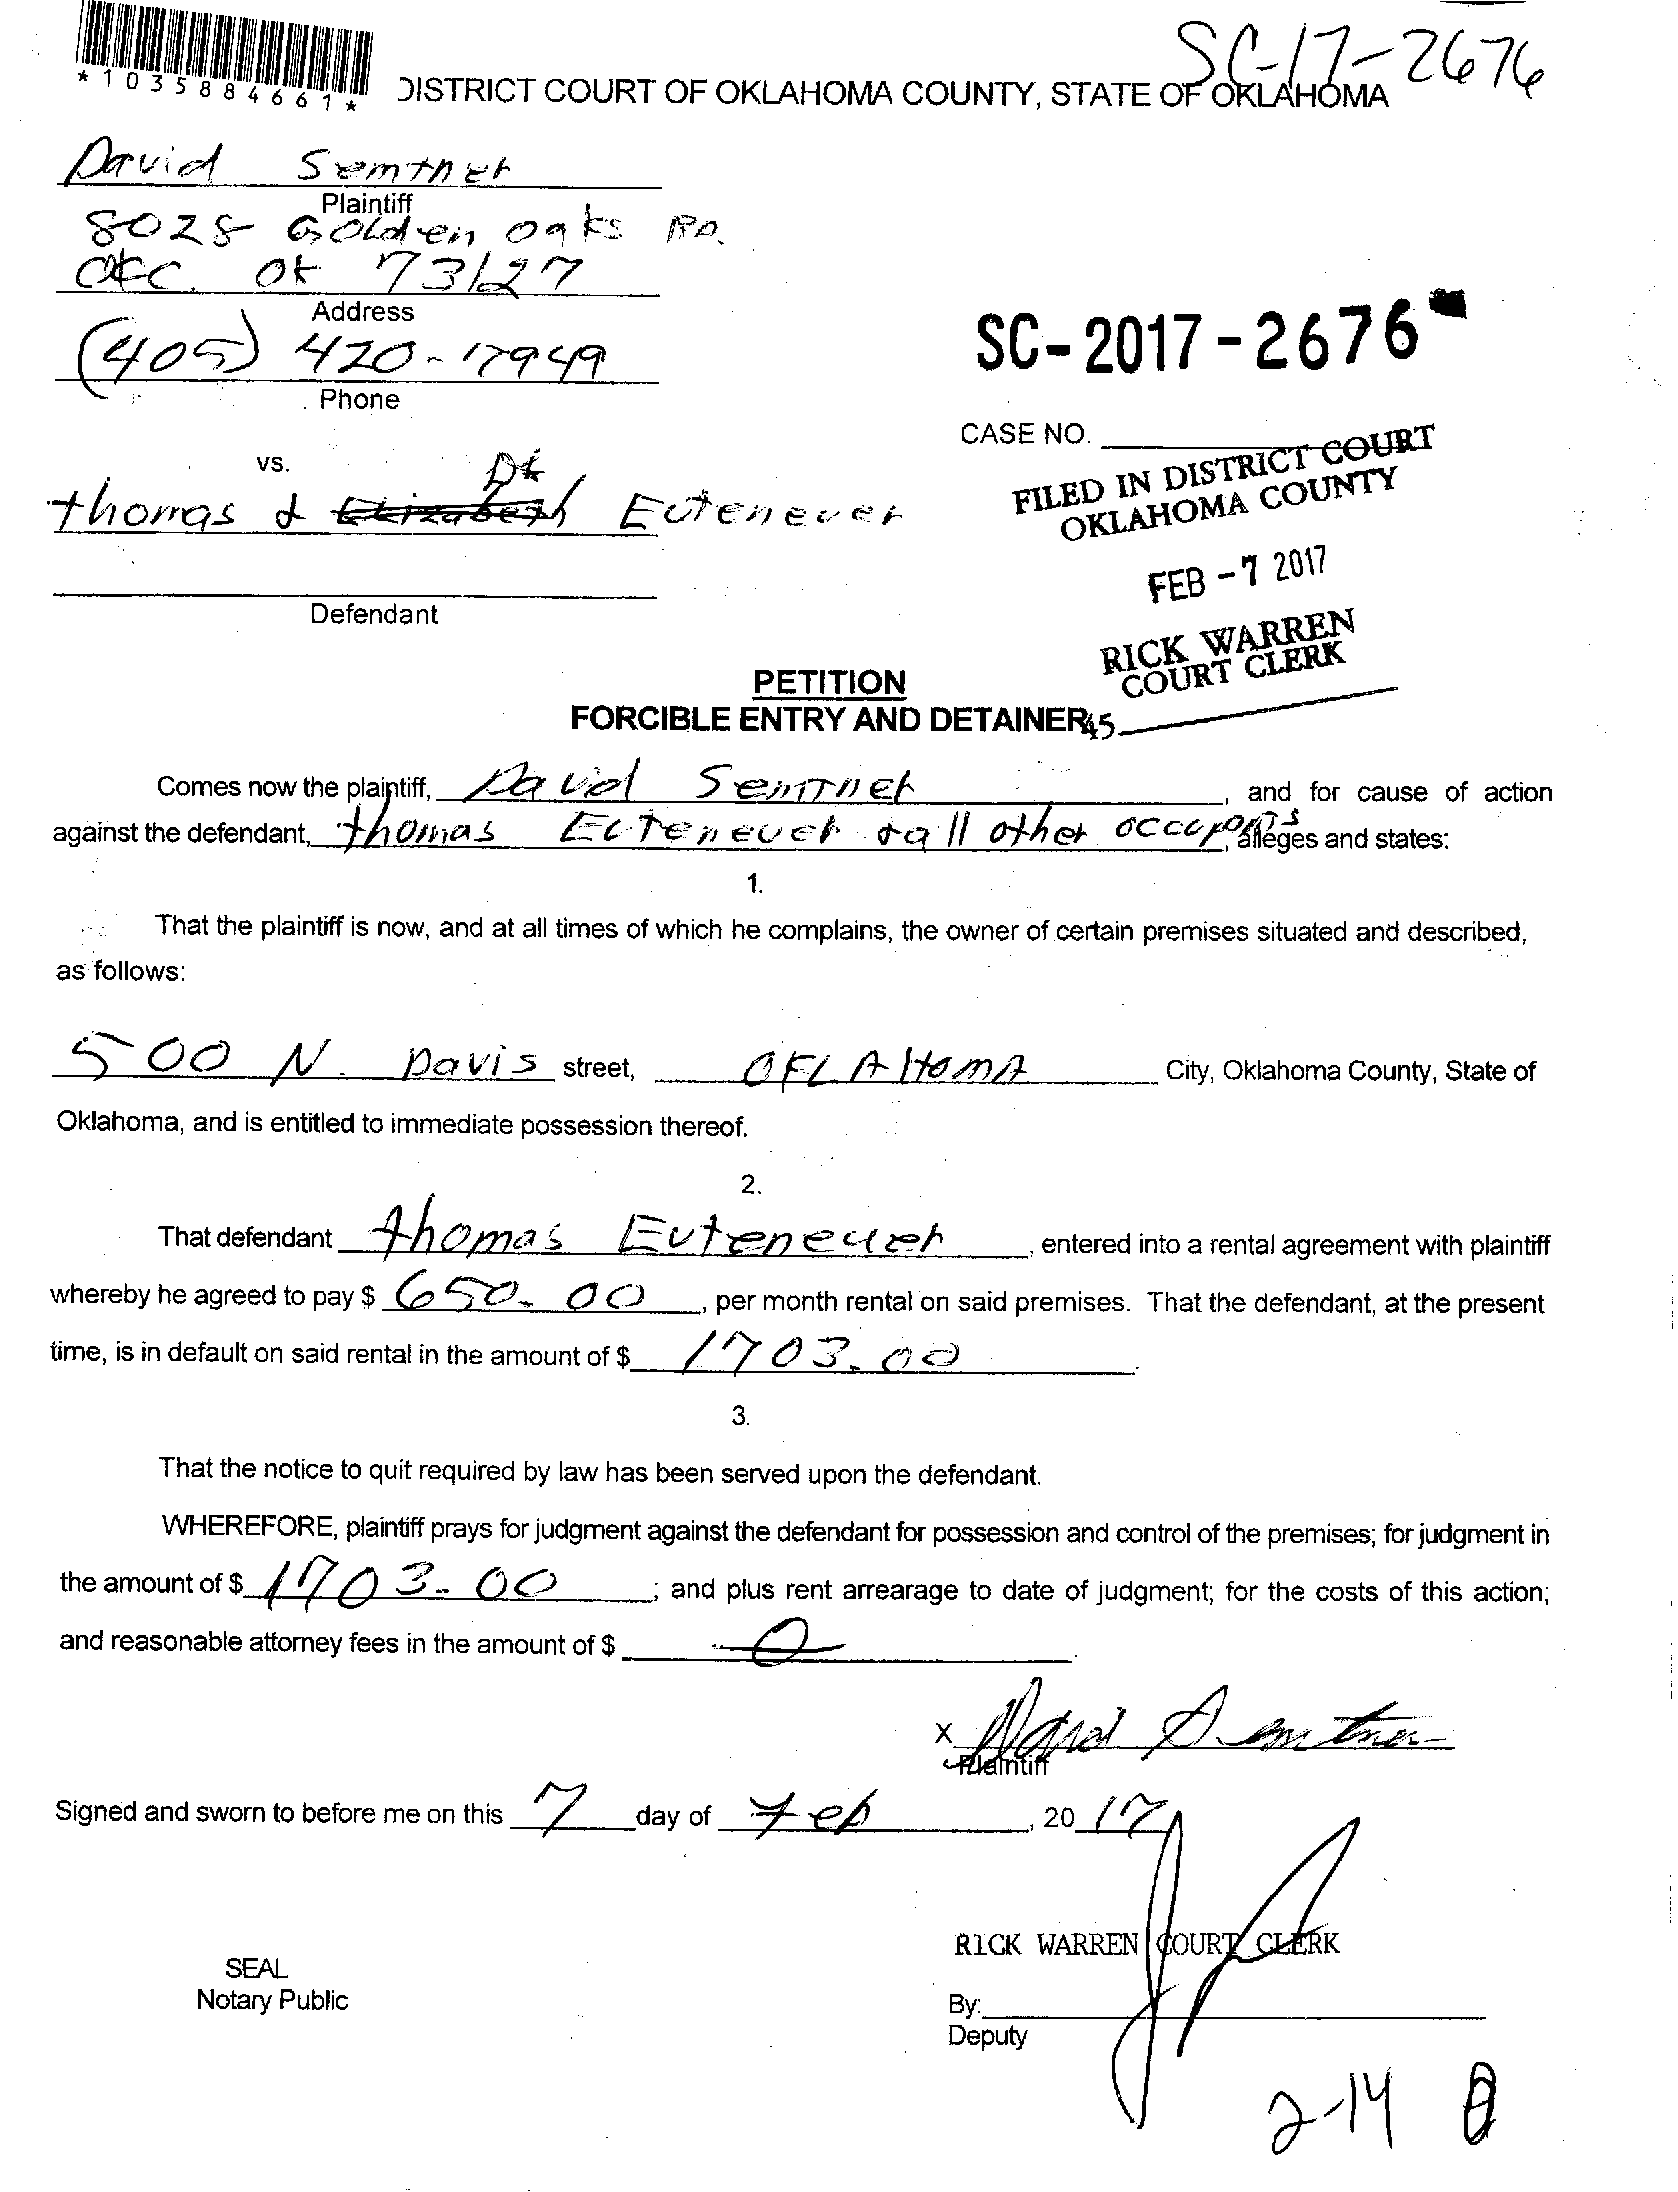 SC-17-2676
*1035884661*
DISTRICT COURT OF OKLAHOMA COUNTY, STATE OF OKLAHOMA
David Semtner
Plaintiff
8028 Golden oaks RD.
OKC. OK 73127
Address
(405) 420-1949
Phone
SC-2017-2676
CASE NO.
vs.
thomas & Elizabeth Euteneuer
FILED IN DISTRICT COURT
OKLAHOMA COUNTY
FEB -7 2017
Defendant
RICK WARREN
COURT CLERK
PETITION
FORCIBLE ENTRY AND DETAINER
45
Comes now the plaintiff, David Semtner, and for cause of action
against the defendant, thomas Euteneuer & all other occupants, alleges and states:
1.
That the plaintiff is now, and at all times of which he complains, the owner of certain premises situated and described,
as follows:
500 N. Davis street, OKLAHOMA City, Oklahoma County, State of
Oklahoma, and is entitled to immediate possession thereof.
2.
That defendant thomas Euteneuer, entered into a rental agreement with plaintiff
whereby he agreed to pay $ 650.00, per month rental on said premises. That the defendant, at the present
time, is in default on said rental in the amount of $ 1703.00.
3.
That the notice to quit required by law has been served upon the defendant.
WHEREFORE, plaintiff prays for judgment against the defendant for possession and control of the premises; for judgment in
the amount of $ 1703.00; and plus rent arrearage to date of judgment; for the costs of this action;
and reasonable attorney fees in the amount of $ 0.
X David Semtner
Plaintiff
Signed and sworn to before me on this 7 day of Feb, 2017
RICK WARREN COURT CLERK
SEAL
Notary Public
By:
Deputy
2-14